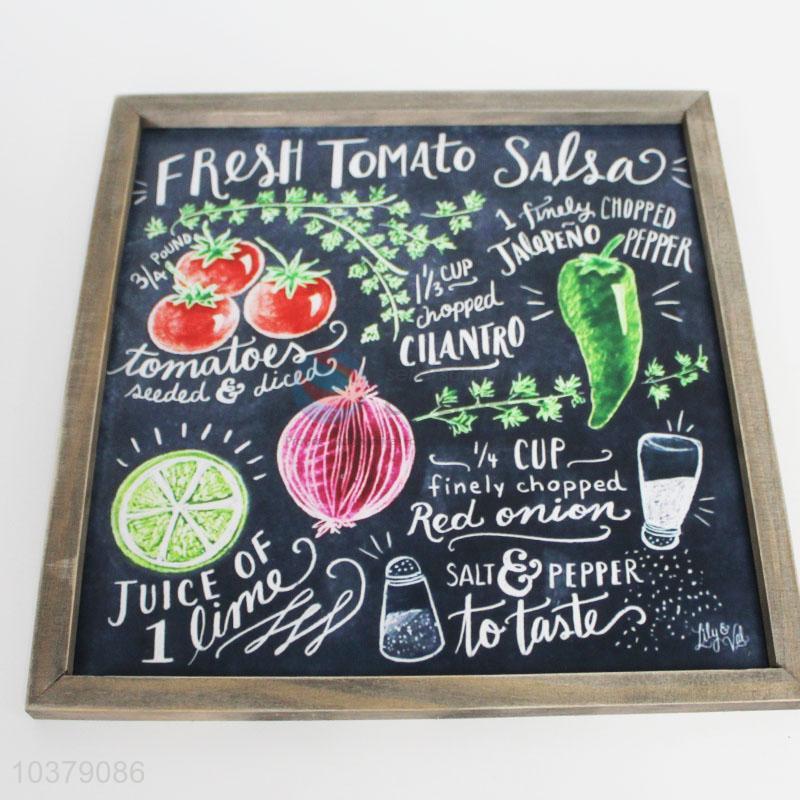 FRESH TOMATO Salsa
3/4 POUND
tomatoes
seeded & diced
1 finely CHOPPED
JALAPEÑO PEPPER
1 1/3 CUP
chopped
CILANTRO
1/4 CUP
finely chopped
Red onion
JUICE OF
1 lime
SALT & PEPPER
to taste
Lily & Val
10379086